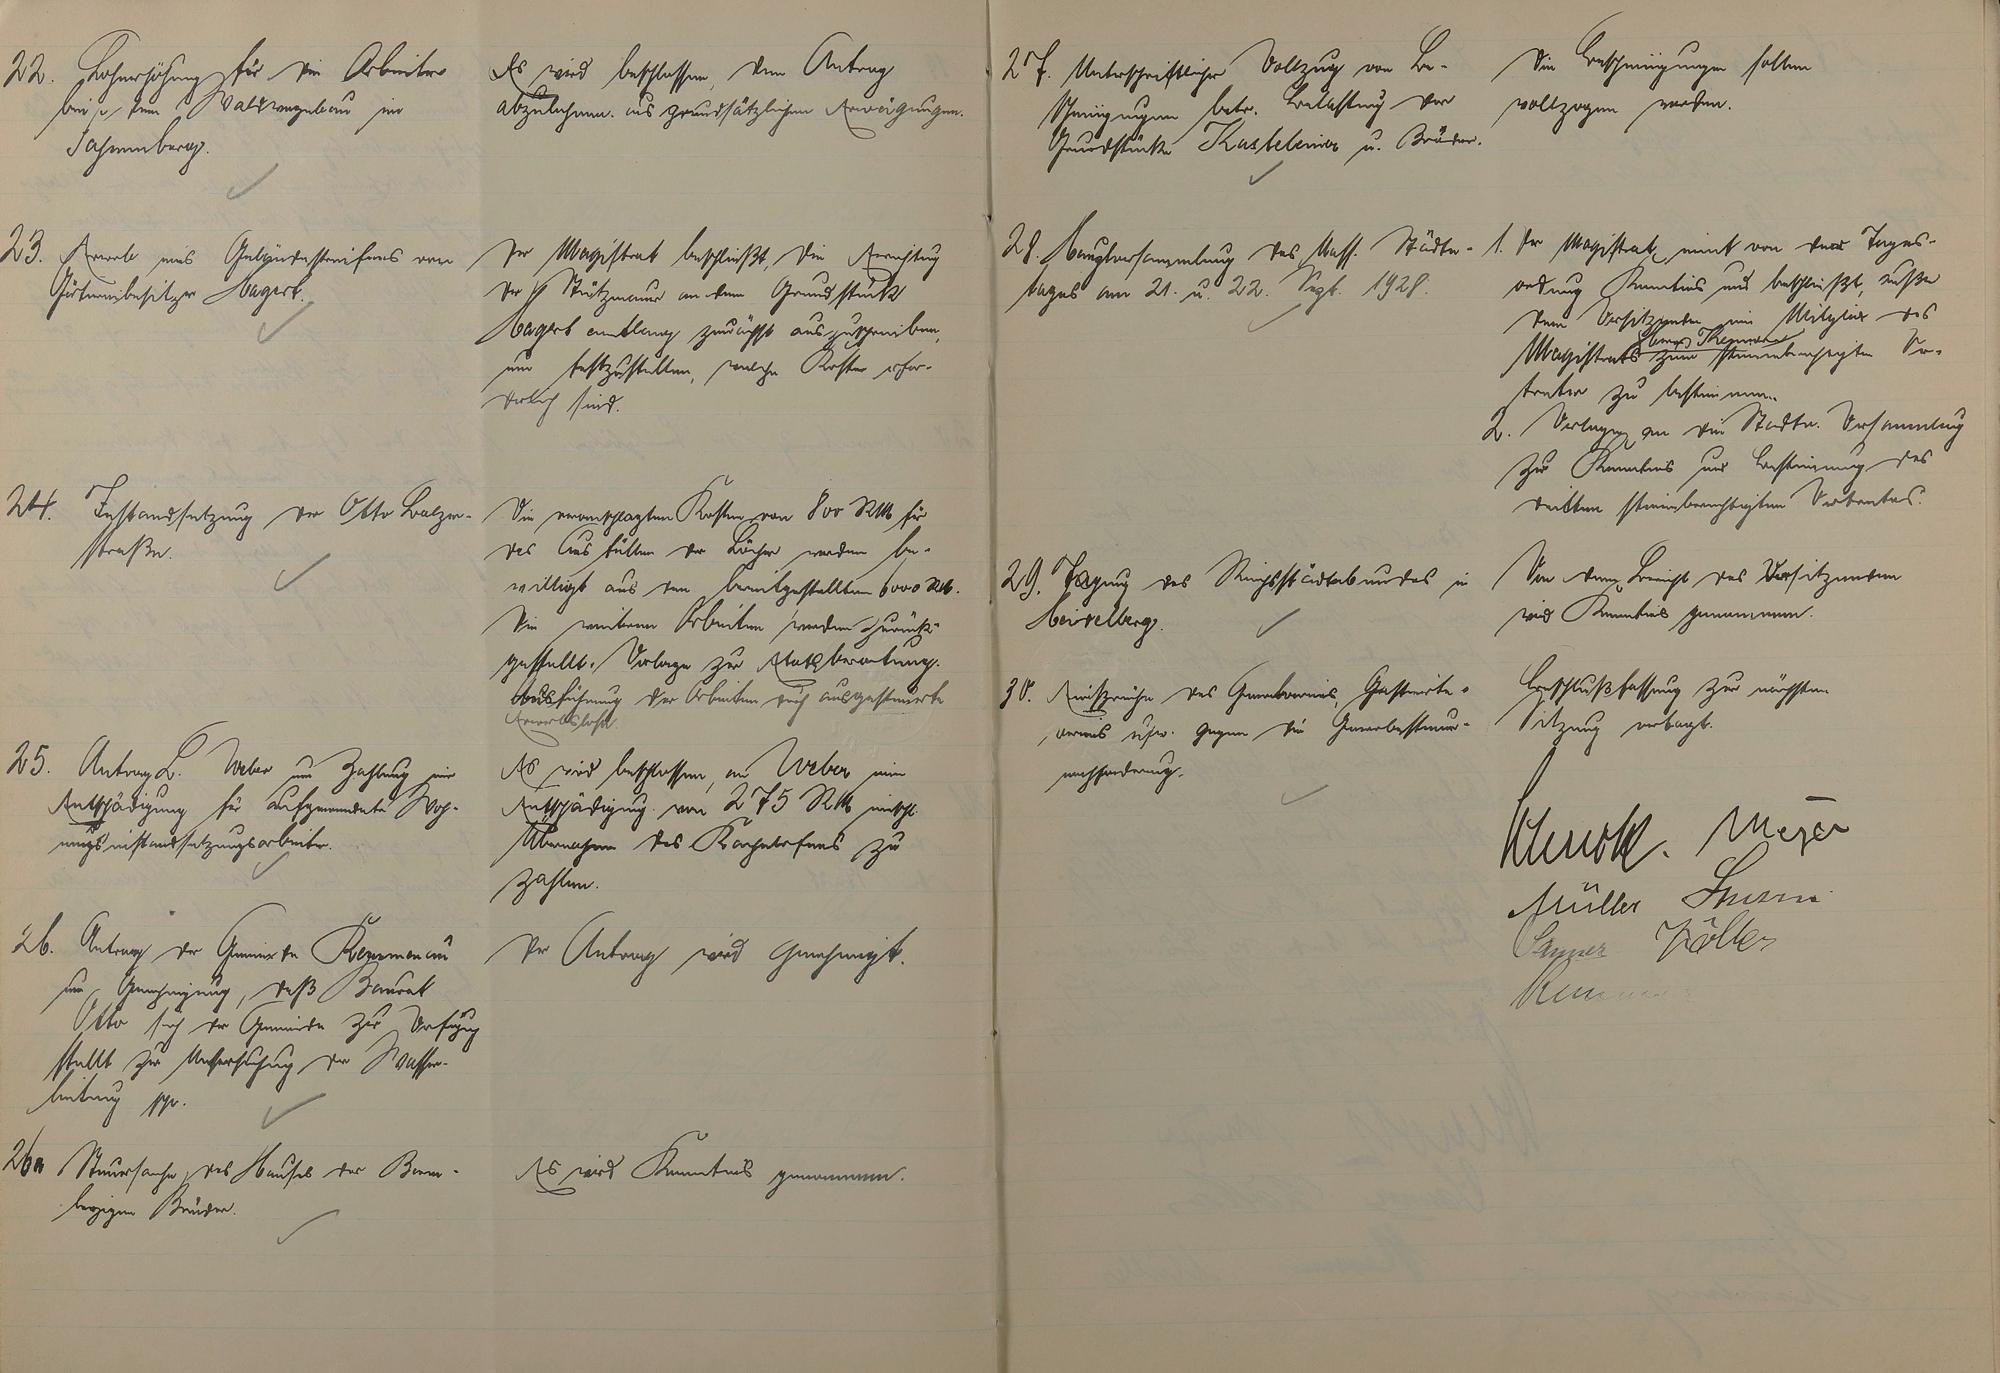 22. Lohnerhöhung für die Arbeiter
bei dem Waldwegebau im
Tahmberg.
Es wird beschlossen, den Antrag
abzulehnen aus grundsätzlichen Erwägungen.
23. Erwerb eines Geländestreifens von
Gärtnereibesitzer Hagert.
Der Magistrat beschließt, die Errichtung
der Stützmauer an dem Grundstück
Hagert entlang zunächst auszuschreiben,
um festzustellen, welche Kosten erfor-
derlich sind.
24. Instandsetzung der Otto Balzer-
straße.
Die veranschlagten Kosten von 800 RM für
das Ausfüllen der Löcher werden be-
willigt aus den bereitgestellten 6000 RM.
Die weiteren Arbeiten werden zurück-
gestellt. Vorlage zur Etatsberatung.
Ausführung der Arbeiten durch ausgesteuerte
Erwerbslose.
25. Antrag L. Weber um Zahlung einer
Entschädigung für aufgewendete Woh-
nungsinstandsetzungsarbeiten.
Es wird beschlossen, an Weber eine
Entschädigung von 275 RM einschl.
Übernahme des Kachelofens zu
zahlen.
26. Antrag der Gemeinde Kemmenau
um Genehmigung, daß Baurat
Otto sich der Gemeinde zur Verfügung
stellt zur Untersuchung der Wasser-
leitung pp.
Der Antrag wird genehmigt.
26a Steuersache des Hauses der Barm-
herzigen Brüder.
Es wird Kenntnis genommen.
27. Unterschriftlicher Vollzug von Be-
scheinigungen betr. Belastung der
Grundstücke Kasteleiner u. Bruder.
Die Bescheinigungen sollen
vollzogen werden.
28. Hauptversammlung des Nass. Städte-
tages am 21. u. 22. Sept. 1928.
1. Der Magistrat nimmt von der Tages-
ordnung Kenntnis und beschließt, außer
dem Vorsitzenden ein Mitglied des
Magistrats zum stimmberechtigten Ver-
treter zu bestimmen.
2. Vorlage an die Stadtv. Versammlung
zur Kenntnis und Bestimmung des
dritten stimmberechtigten Vertreters.
29. Tagung des Reichsstädtebundes in
Heidelberg.
Von dem Bericht des Vorsitzenden
wird Kenntnis genommen.
30. Einsprüche des Gewerbevereins, Gastwirte-
vereins usw. gegen die Gewerbesteuer-
nachforderung.
Beschlußfassung zur nächsten
Sitzung vertagt.
Meyer
Müller